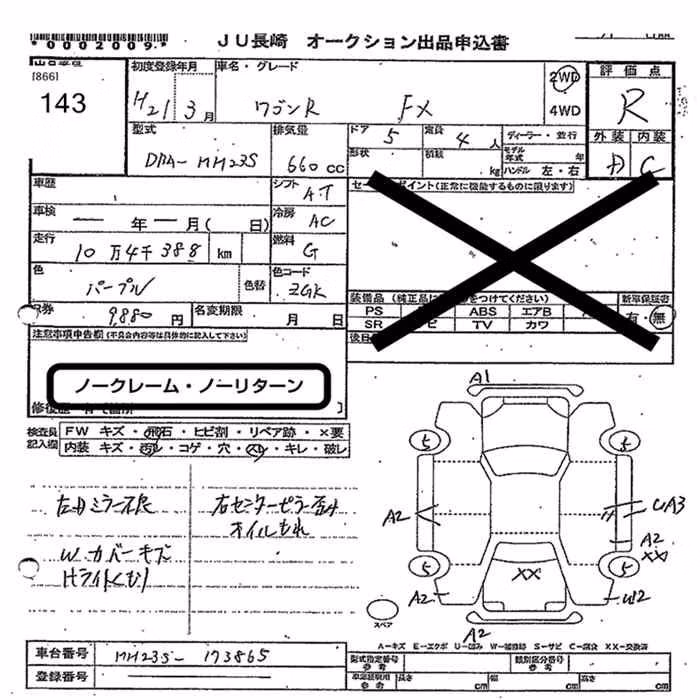 *0002009*
JU長崎 オークション出品申込書
[866]
143
初度登録年月
H21 3月
車名・グレード
ワゴンR FX
2WD
4WD
評価点
R
外装 内装
D C
型式
DBA-MH23S
排気量
660cc
ドア 5
定員 4人
ディーラー・並行
形状
積載 kg
モデル年式 年
ハンドル 左・右
車歴
シフト AT
車検
年 月( 日)
冷房 AC
走行
10万4千388 km
燃料 G
色
パープル
色替
色コード
ZGK
R券 9,880円
名変期限 月 日
ポイント(正常に機能するものに限ります)
装備品(純正品に をつけてください)
PS ABS エアB
SR TV カワ
新車保証書
有・無
注意事項申告欄(不具合内容等は具体的に記入して下さい)
ノークレーム・ノーリターン
検査員記入欄
FW キズ・飛石・ヒビ割・リペア跡・×要
内装 キズ・汚レ・コゲ・穴・スレ・キレ・破レ
左ドミラー不良
右センターピラー
オイルもれ
W.カバーキズ
Hライトくもり
A1
5 5
A2
UA3
A2
XX
5 5
XX
A2
W2
A2
スペア
A-キズ E-エクボ U-凹み W-補修跡 S-サビ C-腐食 XX-交換済
車台番号 MH23S-173865
登録番号
型式指定番号 参考
類別区分番号 参考
長さ cm
幅 cm
高さ cm